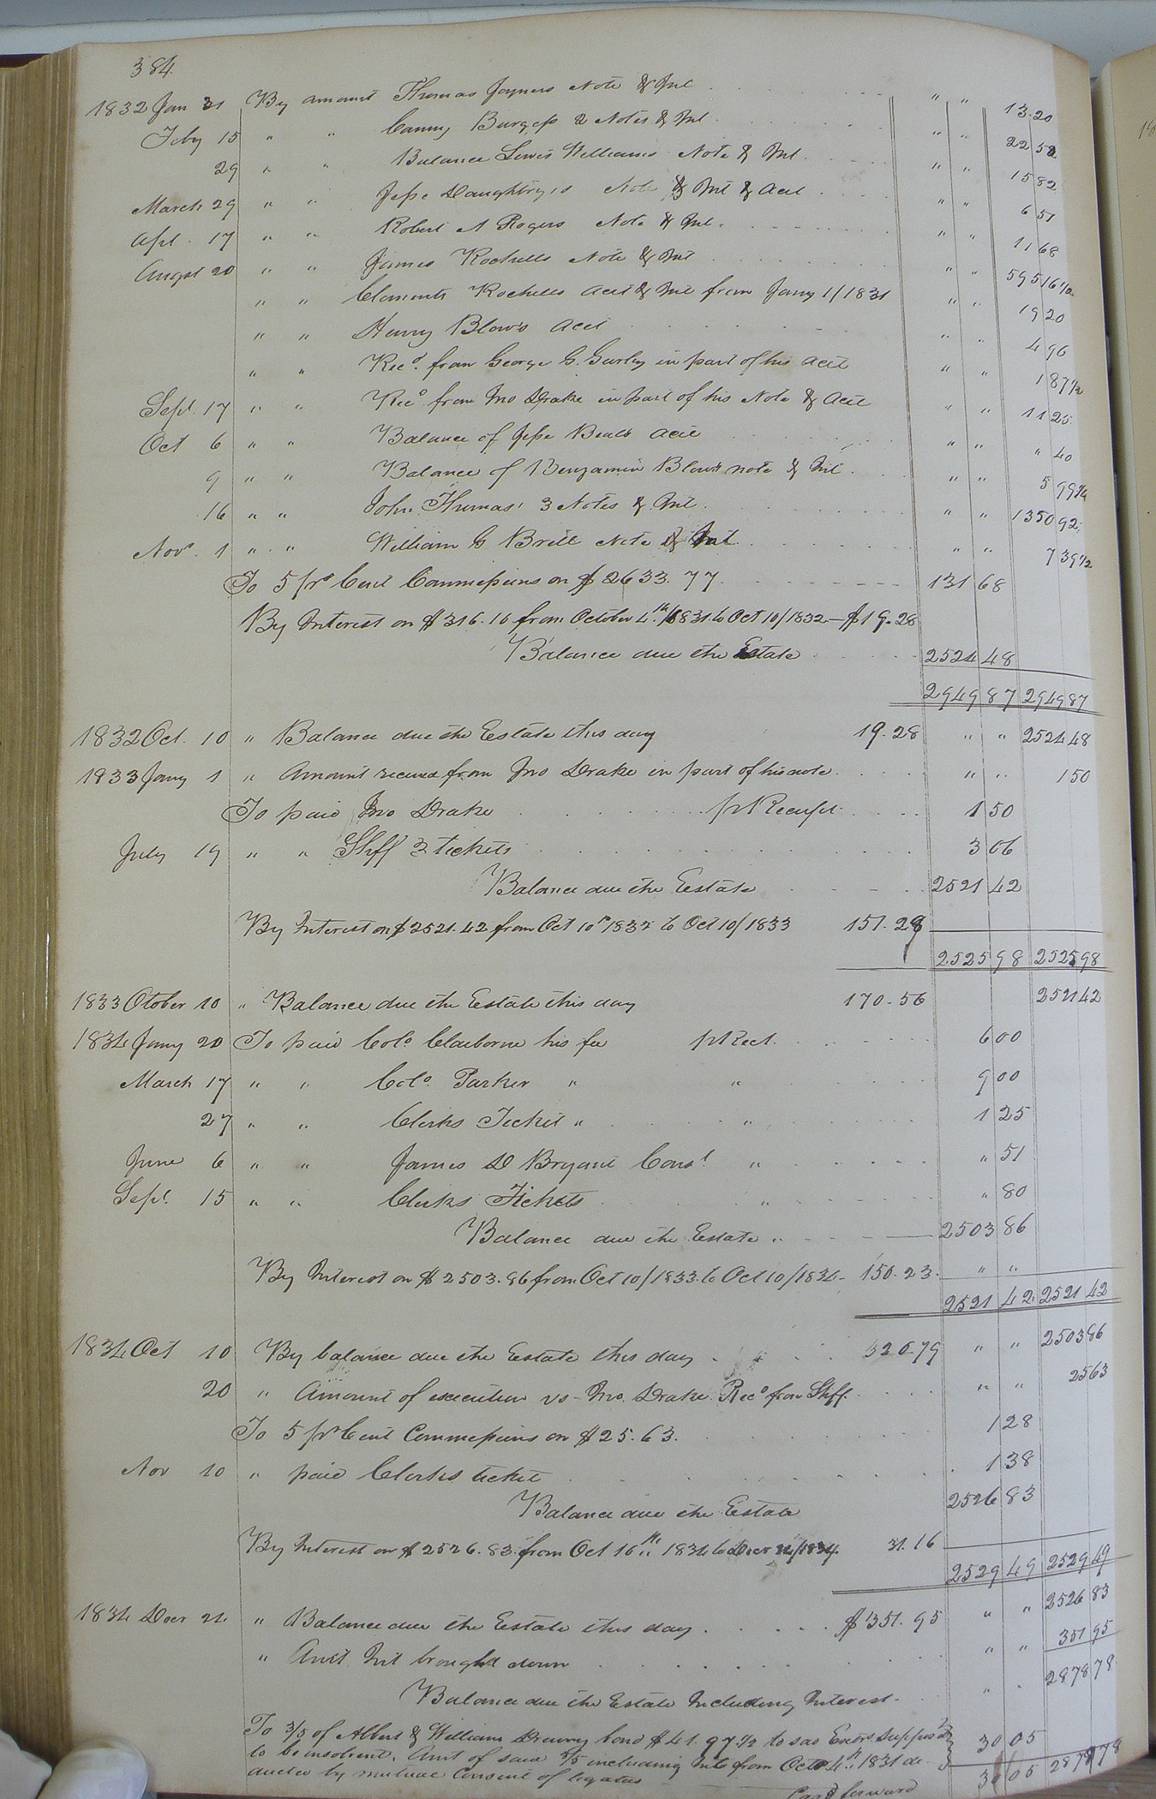 384
1832 Jan 31 By amount Thomas Joyners Note & Int " " 13.20
Feby 15 " " Canny Burgess 2 Notes & Int " " 22 52
29 " " Balance Lewis Williams Note & Int " " 15 82
March 29 " " Jesse Daughtry's Note & Int & Acct " " 6 51
Apl. 17 " " Robert A Rogers Note & Int. " " 11 68
Augst 20 " " James Rochells Note & Int " " 595 16 1/2
" " Clements Rochells Acct & Int from Jany 1/1831 " " 19 20
" " Henry Blow's Acct " " 4 96
" " Recd. from George G. Gurley in part of his Acct " " 1 87 1/2
Sept. 17 " " Recd from Jno Drake in part of his Note & Acct " " 11 25
Oct 6 " " Balance of Jesse Beals Acct " " " 40
9 " " Balance of Benjamin Blows note & Int. " " 5 99 3/4
16 " " John Thomas' 3 Notes & Int. " " 1350 92
Novr. 1 " " William G Britt Note & Int " " 7 39 1/2
To 5 pr Cent Commissions on $2633.77 131 68
By Interest on $316.16 from October 4th 1831 to Oct 10/1832 — $19.28
Balance due the Estate 2524 48
2949 87 2949 87
1832 Oct. 10 " Balance due the Estate this day 19.28 " " 2524 48
1833 Jany 1 " Amount received from Jno Drake in part of his note " " 1 50
To paid Jno Drake pr Receipt 1 50
July 19 " " Shff 3 tickets 3 06
Balance due the Estate 2521 42
By Interest on $2521.42 from Oct 10th 1832 to Oct 10/1833 151.28
2525 98 2525 98
1833 Otober 10 " Balance due the Estate this day 170.56 2521 42
1834 Jany 20 To paid Colo Claiborne his fee pr Rect. 6 00
March 17 " " Colo. Parker " " 9 00
27 " " Clerks Ticket " " 1 25
June 6 " " James D Bryant Const " " 51
Sept. 15 " " Clerks Tickets " " 80
Balance due the Estate " 2503 86
By Interest on $2503.86 from Oct 10/1833 to Oct 10/1834 150.23. " "
2521 42 2521 42
1834 Oct 10 By balance due the Estate this day 320.79 " " 2503 86
20 " Amount of execution vs Jno. Drake Recd from Shff. " " 25 63
To 5 pr Cent Commissions on $25.63. 1 28
Nov 10 " paid Clerks ticket 1 38
Balance due the Estate 2526 83
By Interest on $2526.83 from Oct 10th 1834 to Decr 24/1834. 31.16
2529 49 2529 49
1834 Decr 24 " Balance due the Estate this day $351.95 " " 2526 83
" Amt. Int brought down " " 351 95
Balance due the Estate Including Interest " " 2878 78
To 3/5 of Albert & William Drewry bond $41.97 1/2 to sd Exors supposed
to be insolvent. Amt of said 3/5 including Int from Octo 4th 1831 de- 30 05
ducted by mutual Consent of legatees 30 05 2878 78
Card forward